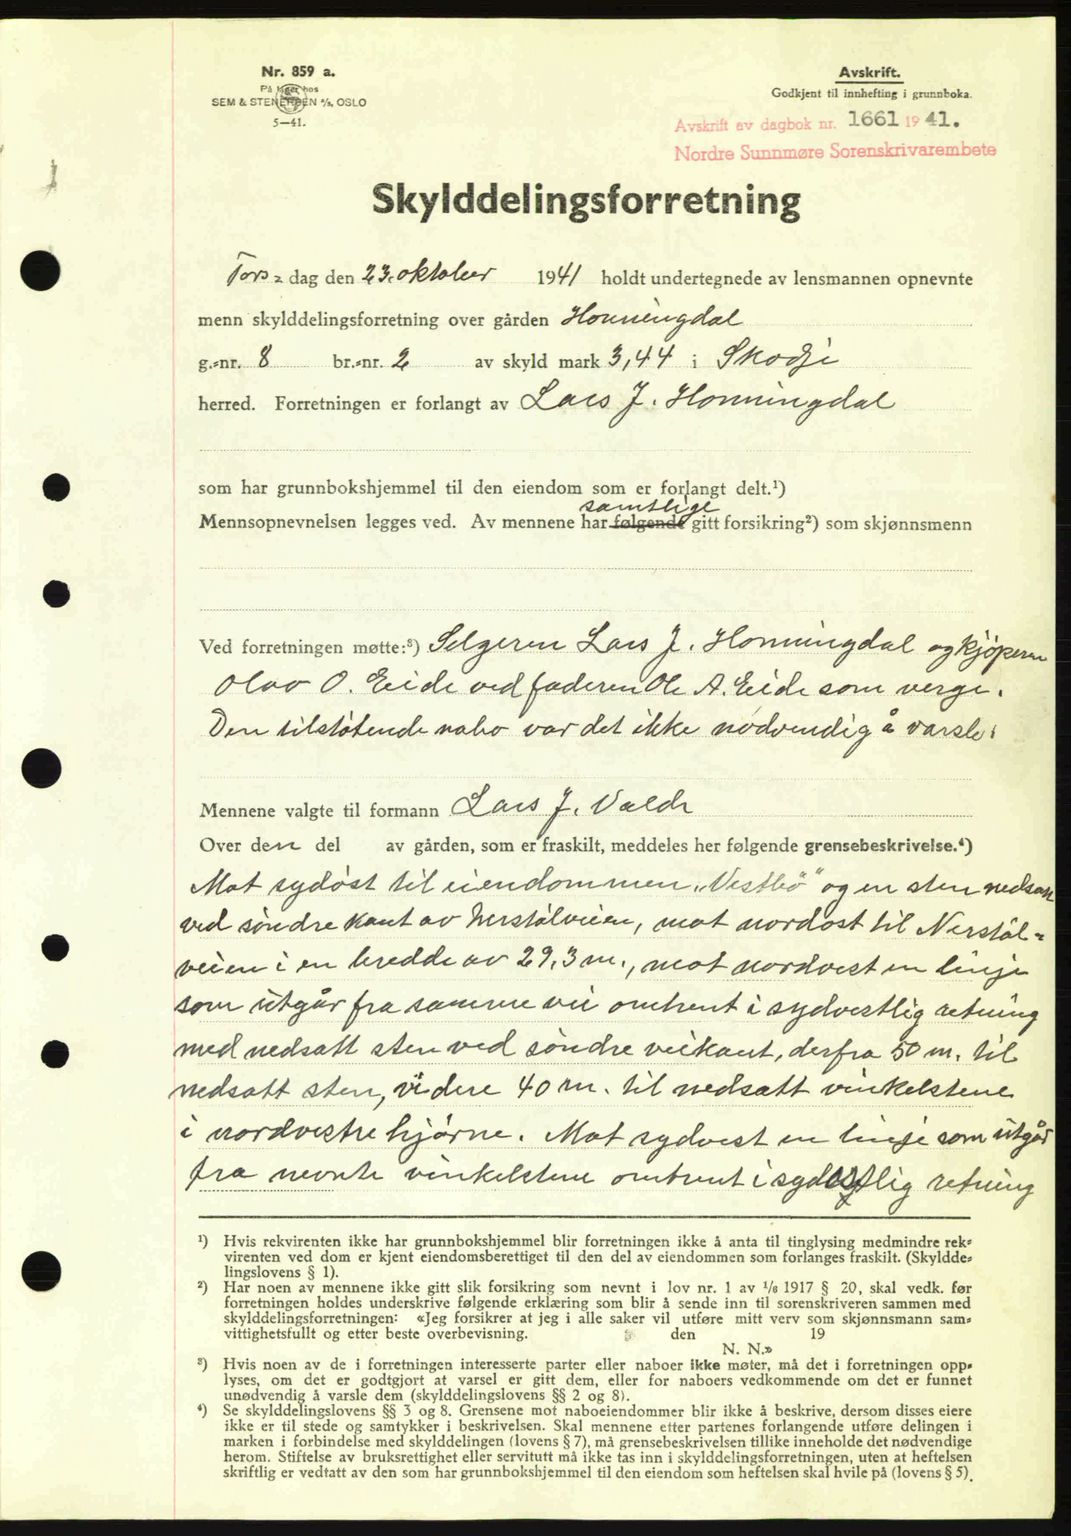 Nr. 859 a.
På lager hos
SEM & STENERSEN A/S, OSLO
5—41.
Avskrift.
Godkjent til innhefting i grunnboka.
Avskrift av dagbok nr. 1661 19 41.
Nordre Sunnmøre Sorenskrivarembete
Skylddelingsforretning
Tors= dag den 23. oktober 1941 holdt undertegnede av lensmannen opnevnte
menn skylddelingsforretning over gården Honningdal
g.=nr. 8 br.=nr. 2 av skyld mark 3,44 i Skodje
herred. Forretningen er forlangt av Lars J. Honningdal
som har grunnbokshjemmel til den eiendom som er forlangt delt.¹)
samtlige
Mennsopnevnelsen legges ved. Av mennene har følgende gitt forsikring²) som skjønnsmenn
Ved forretningen møtte:³) Selgeren Lars J. Honningdal og kjöperen
Olav O. Eide ved faderen Ole A. Eide som verge.
Den tilstötende nabo var det ikke nödvendig å varsle.
Mennene valgte til formann Lars J. Valde
Over den del av gården, som er fraskilt, meddeles her følgende grensebeskrivelse.⁴)
Mot sydöst til eiendommen „Vestbö" og en sten nedsatt
ved söndre kant av Nerstölveien, mot nordost til Nerstöl=
veien i en bredde av 29,3 m., mot nordvest en linje
som utgår fra samme vei omtrent i sydvestlig retning
med nedsatt sten ved söndre veikant, derfra 50 m. til
nedsatt sten, videre 40 m. til nedsatt vinkelstene
i nordvestre hjörne. Mot sydvest en linje som utgår
fra nevnte vinkelstene omtrent i sydöstlig retning
¹) Hvis rekvirenten ikke har grunnbokshjemmel blir forretningen ikke å anta til tinglysing medmindre rek=
virenten ved dom er kjent eiendomsberettiget til den del av eiendommen som forlanges fraskilt. (Skyldde=
lingslovens § 1).
²) Har noen av mennene ikke gitt slik forsikring som nevnt i lov nr. 1 av 1/6 1917 § 20, skal vedk. før
forretningen holdes underskrive følgende erklæring som blir å sende inn til sorenskriveren sammen med
skylddelingsforretningen: «Jeg forsikrer at jeg i alle saker vil utføre mitt verv som skjønnsmann sam=
vittighetsfullt og etter beste overbevisning. den 19
N. N.»
³) Hvis noen av de i forretningen interesserte parter eller naboer ikke møter, må det i forretningen opp=
lyses, om det er godtgjort at varsel er gitt dem, eller for naboers vedkommende om det er funnet
unødvendig å varsle dem (skylddelingslovens §§ 2 og 8).
⁴) Se skylddelingslovens §§ 3 og 8. Grensene mot naboeiendommer blir ikke å beskrive, dersom disses eiere
ikke er til stede og samtykker i beskrivelsen. Skal mennene etter partenes forlangende utføre delingen i
marken i forbindelse med skylddelingen (lovens § 7), må grensebeskrivelsen tillike inneholde det nødvendige
herom. Stiftelse av bruksrettighet eller servitutt må ikke tas inn i skylddelingsforretningen, uten at heftelsen
skriftlig er vedtatt av den som har grunnbokshjemmel til den eiendom som heftelsen skal hvile på (lovens § 5).